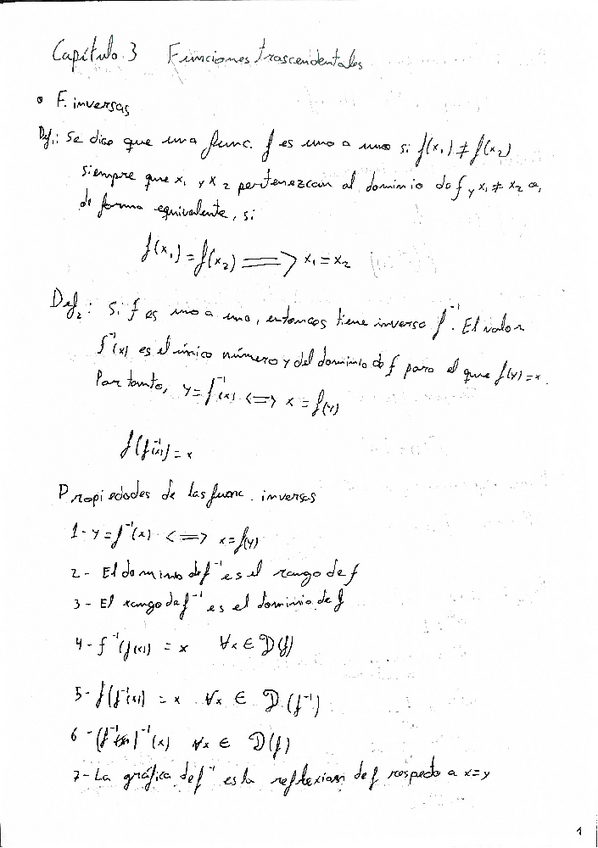 Capítulo 3 Funciones trascendentales
• F. inversas
Def₁: Se dice que una func. f es uno a uno si f(x₁) ≠ f(x₂)
siempre que x₁ y x₂ pertenezcan al dominio de f y x₁ ≠ x₂ o,
de forma equivalente, si
f(x₁) = f(x₂) ⟹ x₁ = x₂
Def₂: Si f es uno a uno, entonces tiene inversa f⁻¹. El valor
f⁻¹(x) es el único número y del dominio de f para el que f(y) = x.
Por tanto, y = f⁻¹(x) <=> x = f(y)
f(f⁻¹(x)) = x
Propiedades de las func. inversas
1- y = f⁻¹(x) <=> x = f(y)
2- El dominio de f⁻¹ es el rango de f
3- El rango de f⁻¹ es el dominio de f
4- f⁻¹(f(x)) = x ∀x ∈ D(f)
5- f(f⁻¹(x)) = x ∀x ∈ D(f⁻¹)
6- (f⁻¹)⁻¹(x) ∀x ∈ D(f)
7- La gráfica de f⁻¹ es la reflexion de f respecto a x=y
1